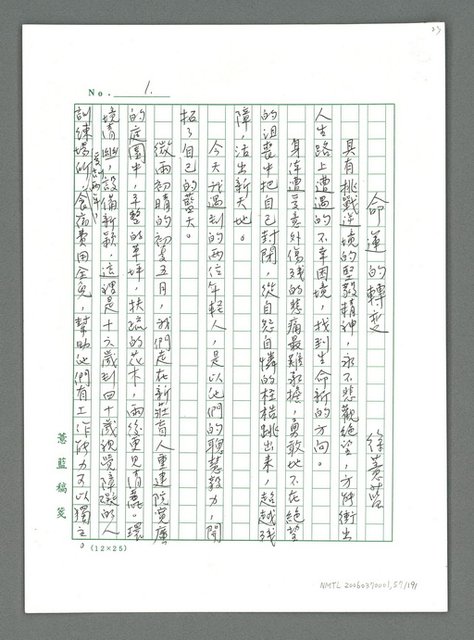 23
No. 1.
命運的轉變
徐薏藍
具有挑戰逆境的堅毅精神，永不悲觀絕望，才能衝出
人生路上遭遇的不幸困境，找到生命新的方向。
身陷遭受意外傷殘的悲痛最難承擔，勇敢地不在絕望
的沮喪中把自己封閉，從自怨自憐的桎梏跳出來，超越殘
障，活出新天地。
今天我遇到的兩位年輕人，是以他們的聰慧毅力，開
拓了自己的藍天。
微雨初晴的初夏五月，我們走在新莊盲人重建院寬廣
的庭園中，平整的草坪，扶疏的花木，雨後更見清麗。環
境清幽，設備新穎，這裡是十六歲到四十歲視覺障礙的人
訓練場所，食宿費用全免，幫助他們有工作能力可以獨立。
薏藍稿箋
(12×25)
NMTL 20060370001, 57/191